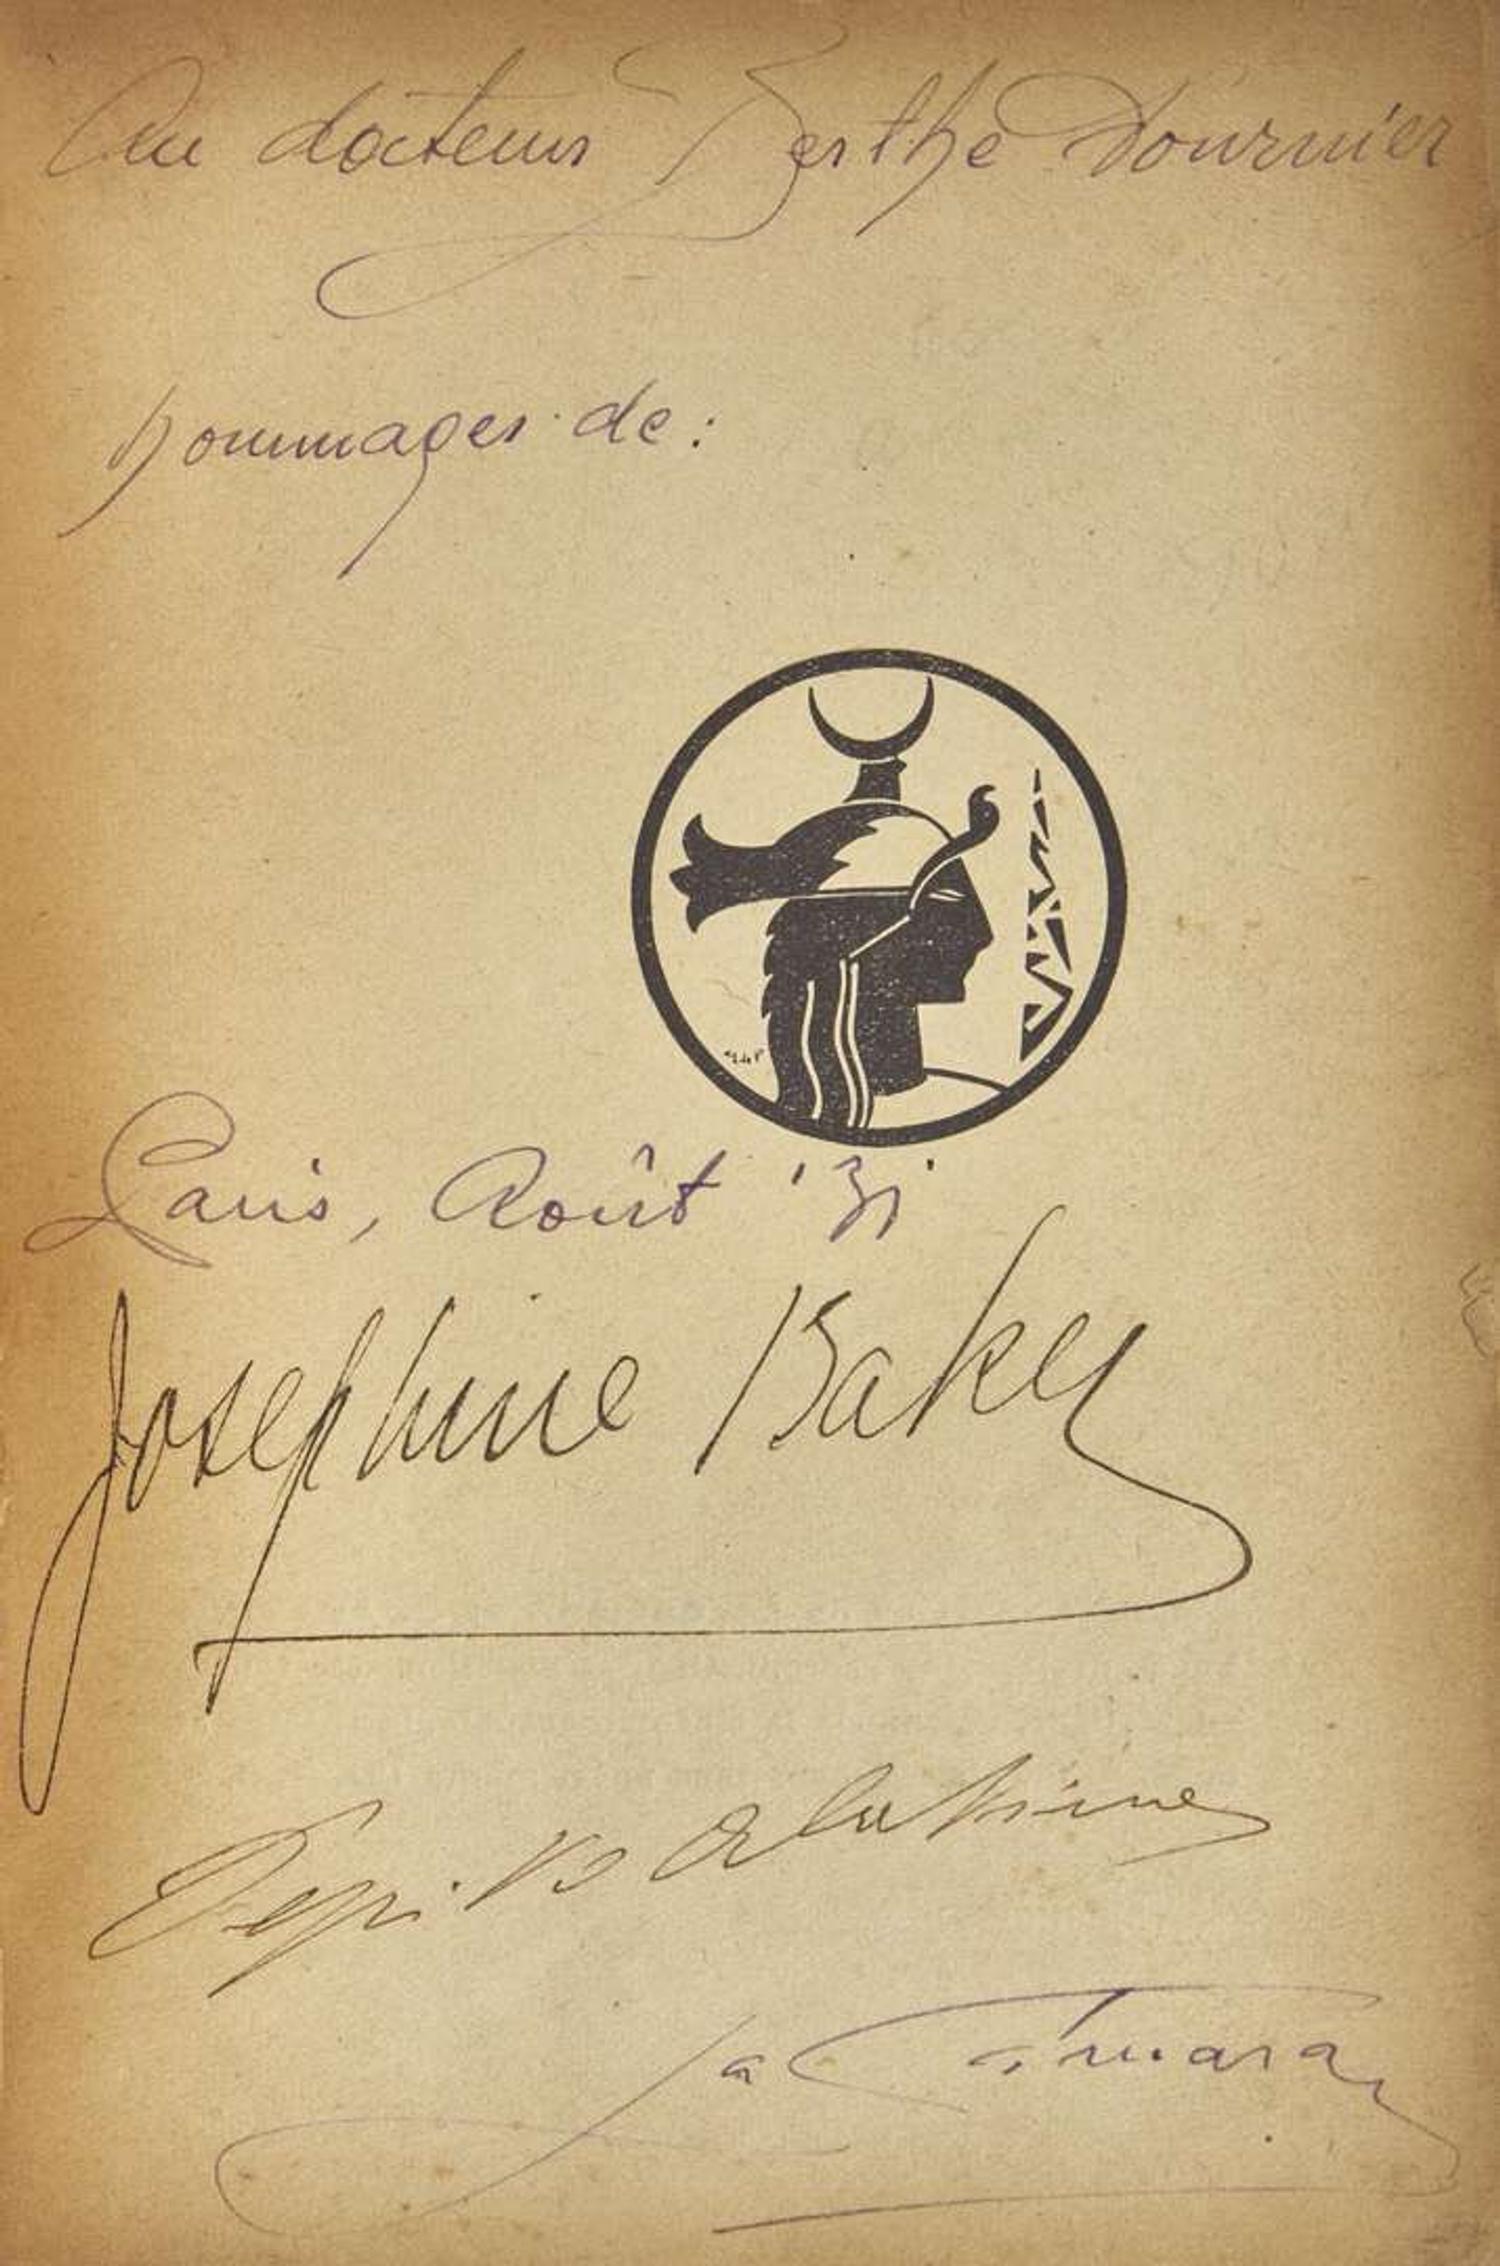 Au docteur Berthe Dournier
hommages de:
Paris, Août '31
Josephine Baker
Pepito Abatino
La Camara